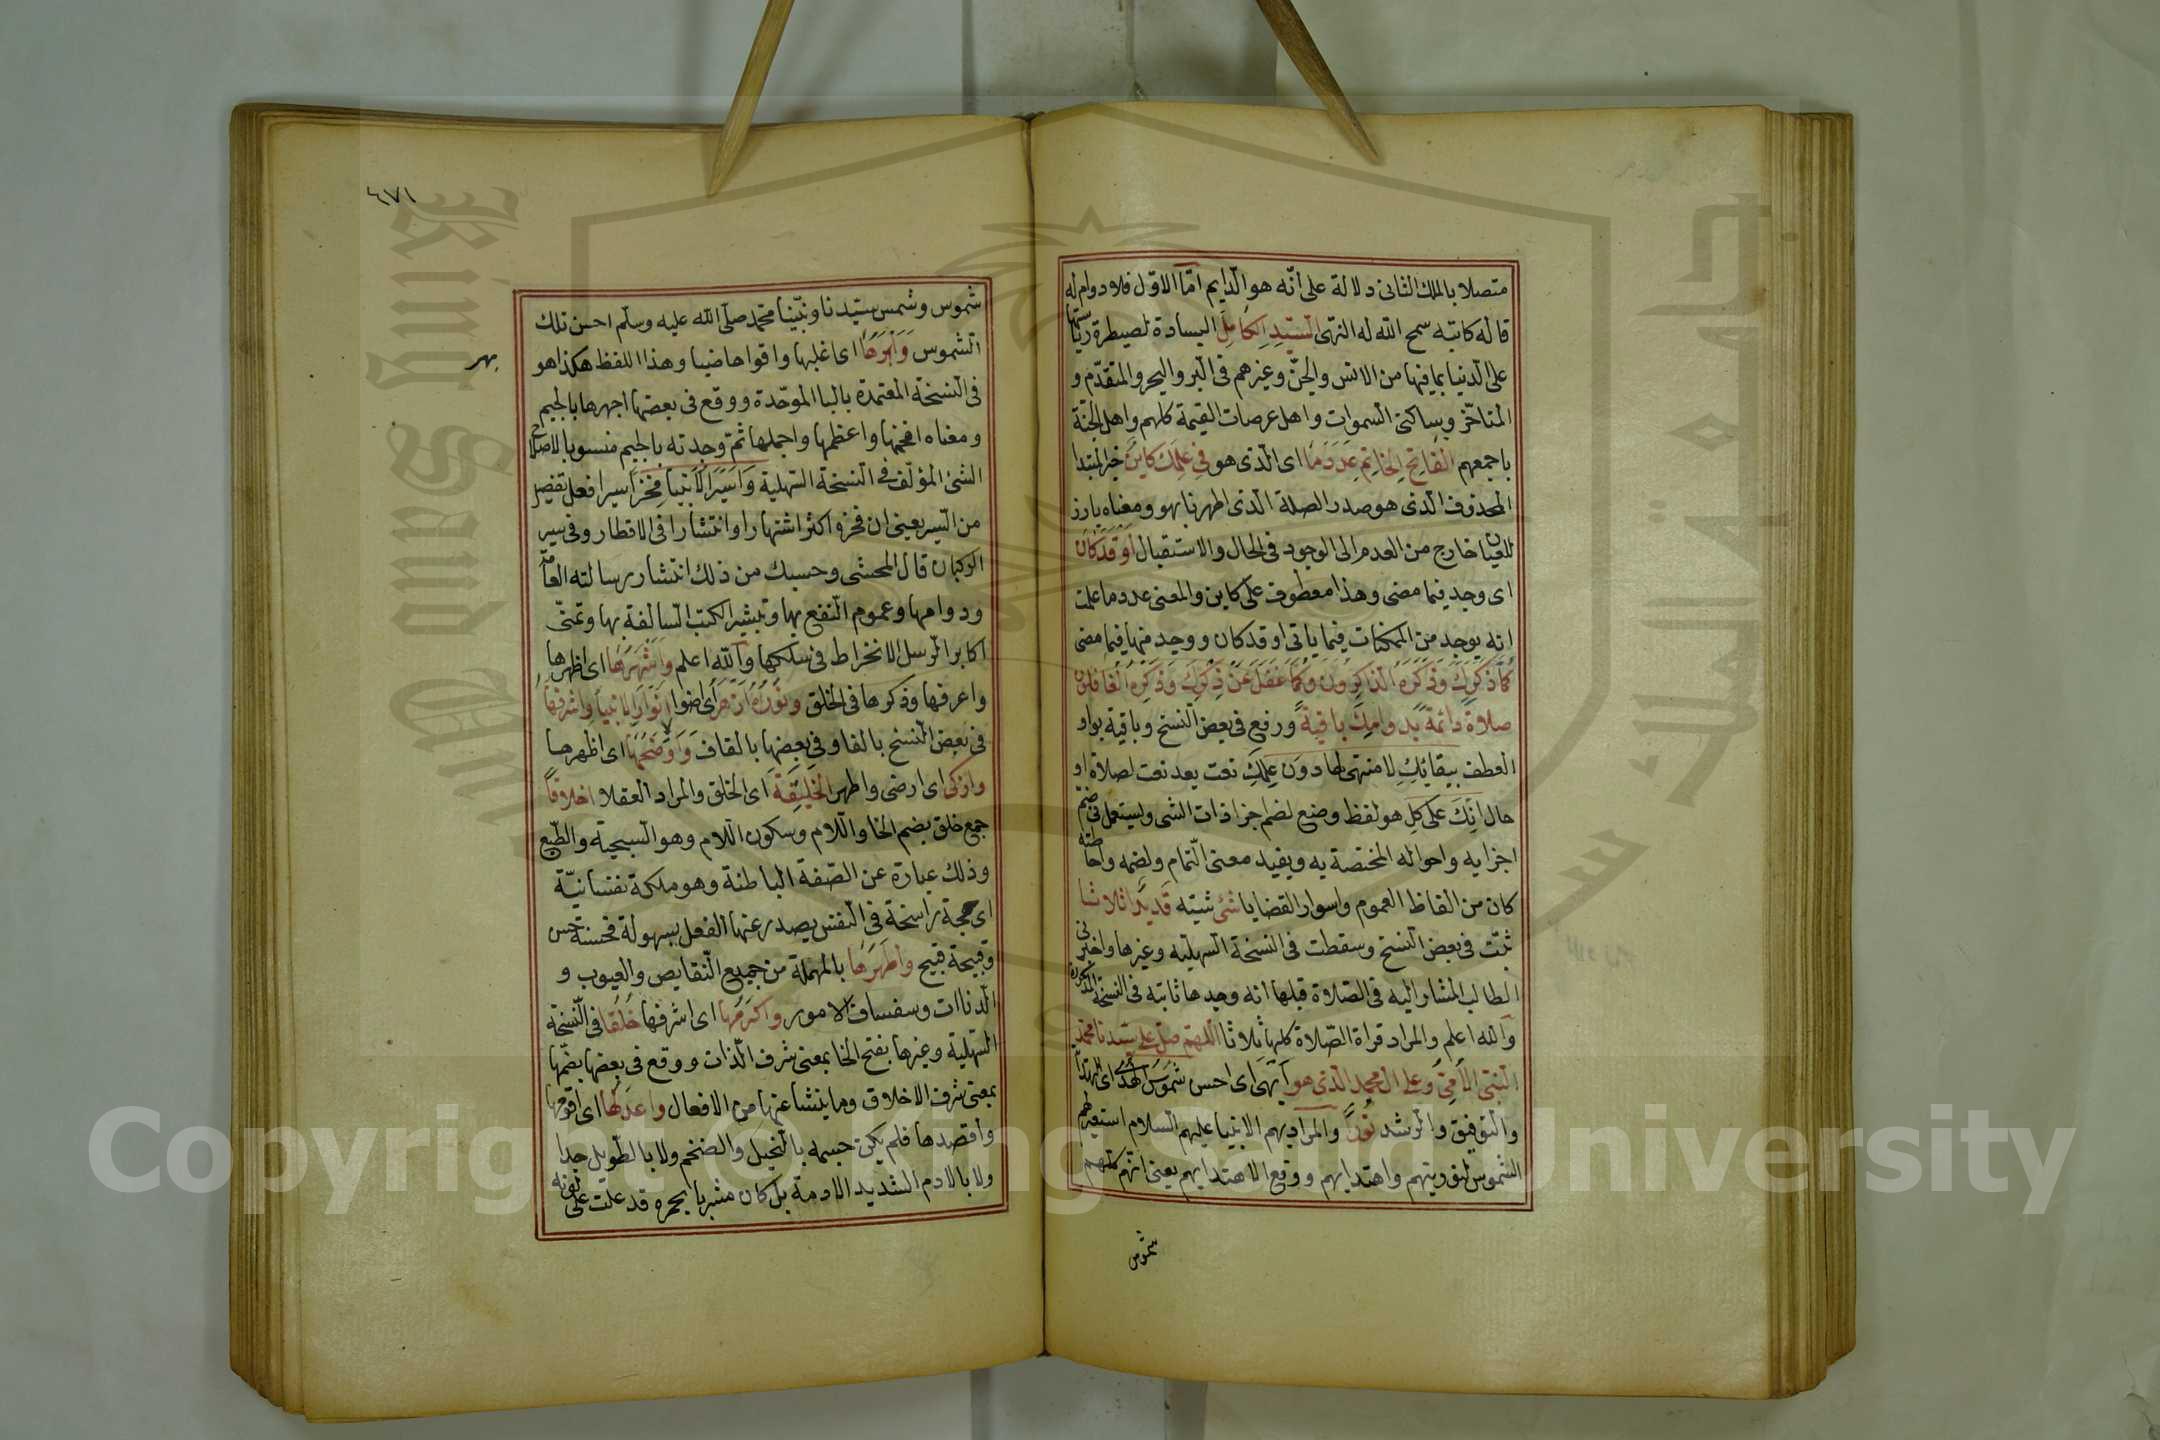 متصلا بالملك الثانى دلالة على انّه هو الدايم امّا الاوّل فلا دوام له
قاله كاتبه سمح الله له انتهى السّيّدِ الكَامِلِ السيادة لصيطرة رياستها
على الدنيا بما فيها من الانس والجنّ وغيرهم فى البر والبحر والمتقدّم و
المتاخّر وبساكنى السموات واهل عرصات القيمة كلهم واهل الجنّة
باجمعهم الفَاتِحِ الخَاتِمِ عَدَدَ مَا اى الّذى هو فِى عِلمِكَ كَاينٌ خبر المبتدا
المحذوف الّذى هو صدر الصلة الّذى اظهرنا بهو ومعناه بارز
للعيان خارج من العدم الى الوجود فى الحال والاستقبال اَو قَد كَانَ
اى وجد فيما مضى وهذا معطوف على كاين والمعنى عدد ما علمت
انه يوجد من الممكنات فيما ياتى او قد كان ووجد منها فيما مضى
كُلّمَا ذَكَرَكَ وَذَكَرَهُ الذّاكِرُونَ وَكُلّمَا غَفَلَ عَن ذِكرِكَ وَذِكرِهِ الغَافِلُونَ
صلاةً دائمةً بدوامِكَ باقيةً ورفع فى بعض النسخ وباقية بواو
العطف ببقائِكَ لا منتهى لها دون علمِكَ نعت بعد نعت لصلاة او
حال انّكَ على كلِ هو لفظ وضع لضم اجزا ذات الشى ويستعمل فى ضم
اجزايه واحواله المختصة به ويفيد معنى التّمام ولضمه واحاطته
كان من الفاظ العموم واسوار القضايا شئ شيته قَديرٌ ا ثلاثا
ثبتت فى بعض النسخ وسقطت فى النسخة السهليه وغيرها واخبرنى
الطالب المشار اليه فى الصّلاوة قبلها انه وجدها ثابته فى النسخة المذكورة
والله اعلم والمراد قراة الصّلاة كلها ثلاثا اللهمّ صلّ على سيّدنا محمّدٍ
النبىّ الأمىّ وعلى ال محمد الذى هو اَبهَى اى احسن شُمُوسَ الهُدَى اى الهتدا
والتوفيق والرشد نُورًا والمراد بهم الانبيا عليهم السلام استعير لهم
الشموس لنورنيتهم واهتدايهم ووقع الاهتدا بهم يعنى انهم كلهم
شموس
٤٧١
شموس وشمس سيّدنا ونبيّنا محمّد صلّى الله عليه وسلّم احسن تلك
الشموس وَاَبهَرهَا اى اغلبها واقواها ضيا وهذا اللفظ هكذا هو
بهر
فى النسخة المعتمدة بالبا الموحّدة ووقع فى بعضها اجهرها بالجيم
ومعناه افخمها واعظمها واجملها ثمّ وجدته بالجيم منسوبا لاصلاح
الشئ المؤلّف فى النسخة السّهلية وَاَسيَرُ الاَنبيَا فَخرًا اسير افعل تفضيل
من السّير يعنى ان فخره اكثر اشتهارا وانتشارا فى الاقطار وفى سير
الركبان قال المحشى وحسبك من ذلك انتشار رسالته العامّة
ودوامها وعموم النفع بها وتبشير الكتب السالفة بها وتمنّى
اكابر الرسل الانخراط فى سلكها والله اعلم وَاَشهَرُهَا اى اظهرها
واعرفها وذكرها فى الخلق ونُورُهُ اَزهَرُ اى اضوا اَنوَارِ الانبيَا واشرقها
فى بعض النسخ بالفا وفى بعضها بالقاف وَاَوضَحُهَا اى اظهرها
واَزكَى اى ارضى واطهر الخَلِيقَةِ اى الخلق والمراد العقلا اخلاقًا
جمع خلق بضم الخا واللام وسكون اللام وهو السجية والطبع
وذلك عبارة عن الصّفة الباطنة وهو ملكة نفسانيّة
اى هيئة راسخة فى النفس يصدر عنها الفعل بسهولة فحسنة حسن
وقبيحة قبيح واَطهَرُهَا بالمهملة من جميع النقايص والعيوب و
الدناات وسفساف الامور واَكرَمُهَا اى اشرفها خَلقًا فى النسخة
السّهلية وغيرها بفتح الخا بمعنى شرف الذات ووقع فى بعضها بضمّها
بمعنى شرف الاخلاق وما ينشا عنها من الافعال واَعدَلُهَا اى اقومها
واقصدها فلم يكن جسمه بالنحيل والضخم ولا بالطويل جدا
ولا بالادم الشديد الادمة بل كان مشربا بحمره قد علت على لونه